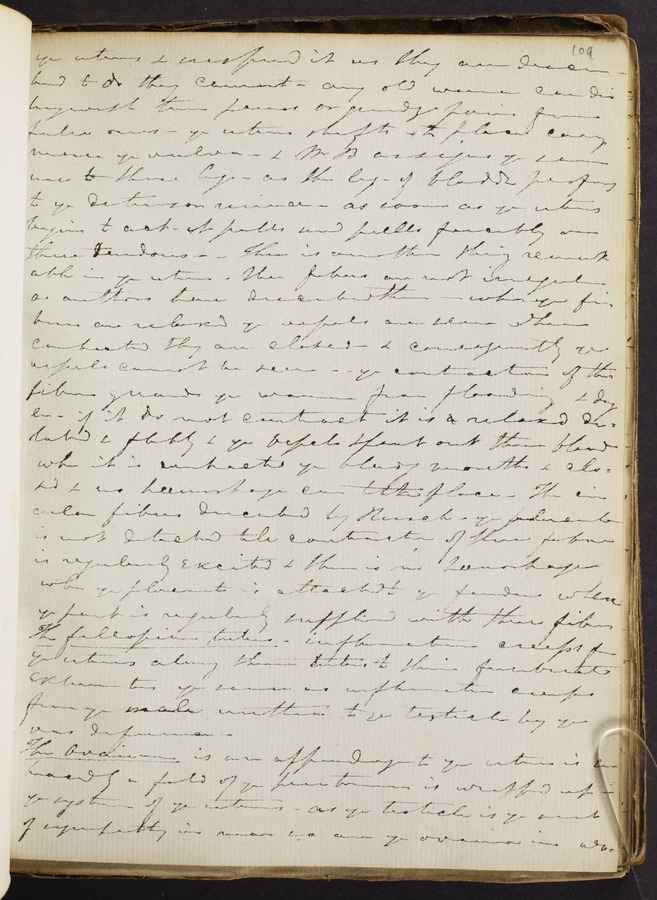 109
ye uterus & suspend it as they are descri-
bed to do they cannot - any old woman can dis
tinguish these pains or grinding pains from
false ones - ye uterus shifts its place every
ye vulva - & Mr B assigns ye same
use to these liga- as the lig- of bladder perform
to ye - as soon as ye uterus
begins to act - it pulls and pulls forcibly on
these tendons - There is another thing remark
able in ye uterus - The fibres are not irregular
as authors have described them - when ye fi-
bres are relaxed ye vessels are seen when
contracted they are closed - & consequently ye
vessels cannot be seen - ye contraction of the
fibres guards ye woman from flooding &
- if it do not contract it is a relaxed di-
lated & flabby & ye vessels spout out their blood
when it is contracted ye bleedg mouths & clo-
sed & no hemorrhage can take place - The cir
cular fibres described by Ruisch - ye placenta
is not detached till contraction of these fibres
is regularly excited & there is no hemorrhage
when ye placenta is attached to ye fundus where
ye part is regularly supplied with these fibres
The fallopian tubes - inflammation creeps fr
ye uterus along these tubes to their fimbriated
extremities ye same as inflammation creeps
from ye male urethra to ye testicle by ye
vas deferens -
The Ovarium is an appendage to ye uterus is
a fold of ye peritoneum is wrapped up in
ye system of ye uterus - as ye testicle is ye
of sympathy in man so are ye ovaria in wo-